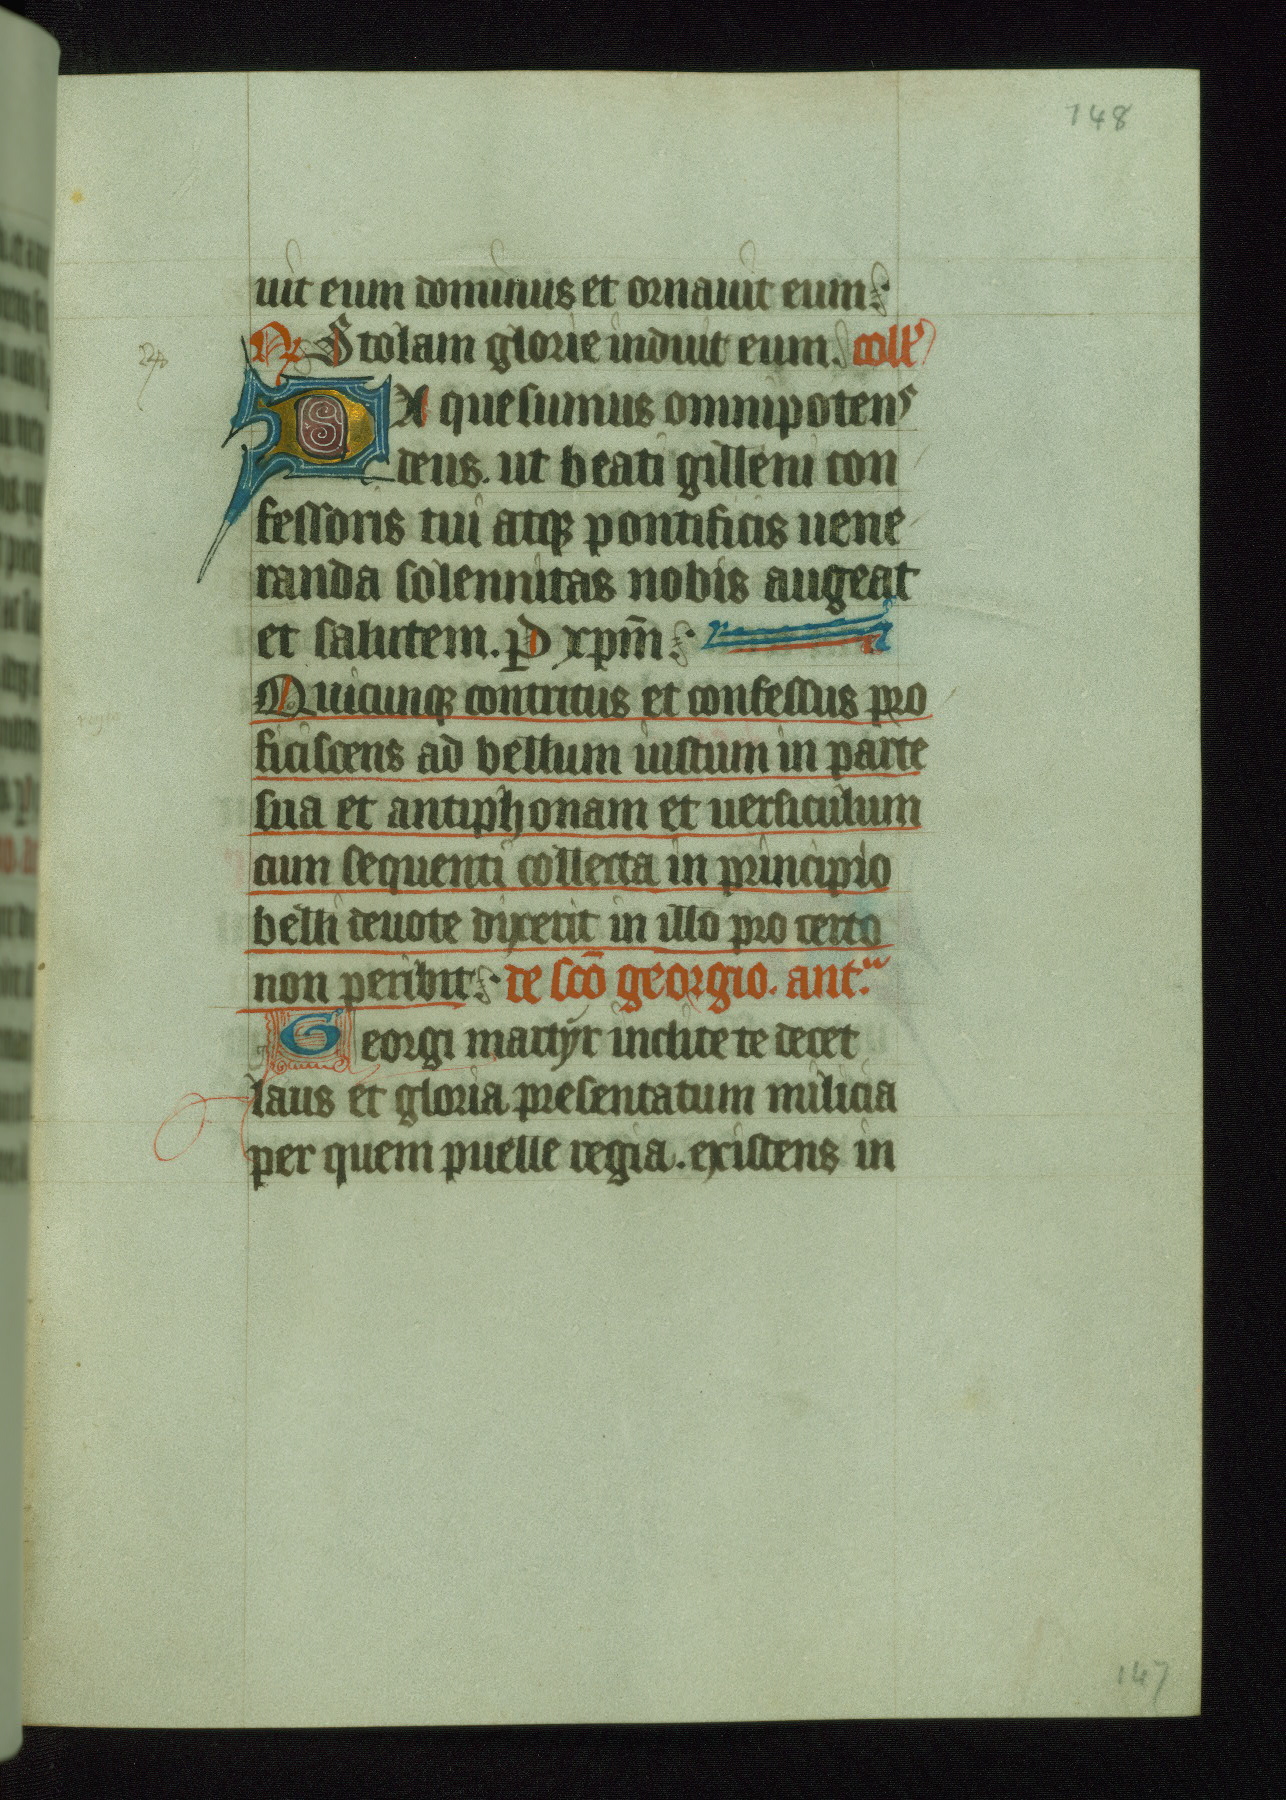 148
uit eum dominus et ornauit eum
R Stolam glorie induit eum. coll'
DA quesumus omnipotens
deus. ut beati gilleni con
fessoris tui atqꝫ pontificis uene
randa solennitas nobis augeat
et salutem. P D xp̄m
Quicunqꝫ contritus et confessus pro
ficiscens ad bellum iustum in parte
sua et antiphonam et uersiculum
cum sequenti collecta in principio
belli deuote dixerit in illo pro certo
non peribit de sc̄o georgio. ant.
Georgi martyr inclite te decet
laus et gloria presentatum milicia
per quem puelle regia. existens in
147